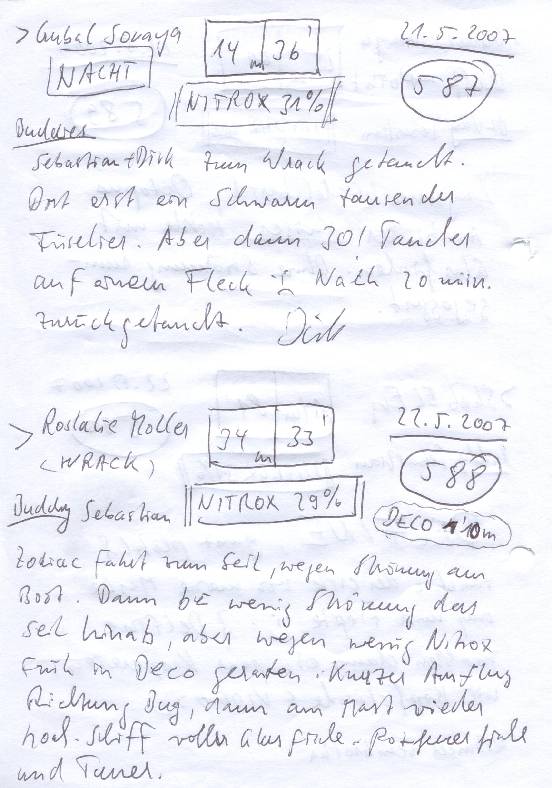 > Gubal Soraya 14 m 36' 21.5.2007
NACHT NITROX 31% 587
Buddies
Sebastian + Dirk zum Wrack getaucht.
Dort erst ein Schwarm tausender
Füselier. Aber dann 30! Taucher
auf einem Fleck Nach 20 min.
zurückgetaucht. Dirk
> Rosalie Moller 34 m 33' 22.5.2007
(WRACK) 588
Buddy Sebastian NITROX 29% DECO 10m
Zodiac Fahrt zum Seil, wegen Strömung am
Boot. Dann bei wenig Strömung das
Seil hinab, aber wegen wenig Nitrox
Früh in Deco geraten. Kurzer Ausflug
Richtung Bug, dann am Mast wieder
hoch. Schiff voller Glasfische.
und Tauer.